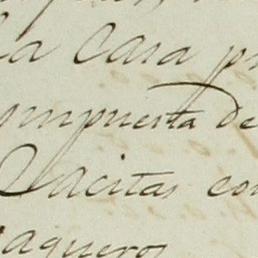 la Casa p
ompuesta de
Quacitas co
aqueros